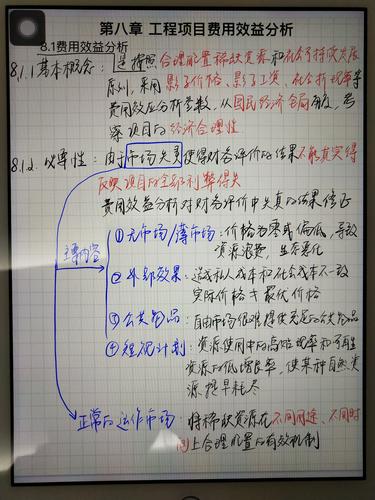 第八章 工程项目费用效益分析
8.1费用效益分析
8.1.1 基本概念：是按照合理配置稀缺资源和社会可持续发展
原则，采用影子价格、影子工资、社会折现率等
费用效益分析参数，从国民经济全局角度，考
察项目的经济合理性
8.1.2 必要性：由于市场失灵使得财务评价的结果不能真实得
反映项目的全部利弊得失
费用效益分析对财务评价中失真的结果修正
主要内容
①无市场/薄市场：价格为零或偏低，导致
资源浪费，生态恶化
②外部效果：造成私人成本和社会成本不一致
实际价格≠最优价格
③公共物品：自由市场很难提供充足的公共物品
④短视计划：资源使用中的高贴现率和可再生
资源的低增长率，使某种自然资
源提早耗尽
正常的运作市场：将稀缺资源在不同用途、不同时
间上合理配置的有效机制